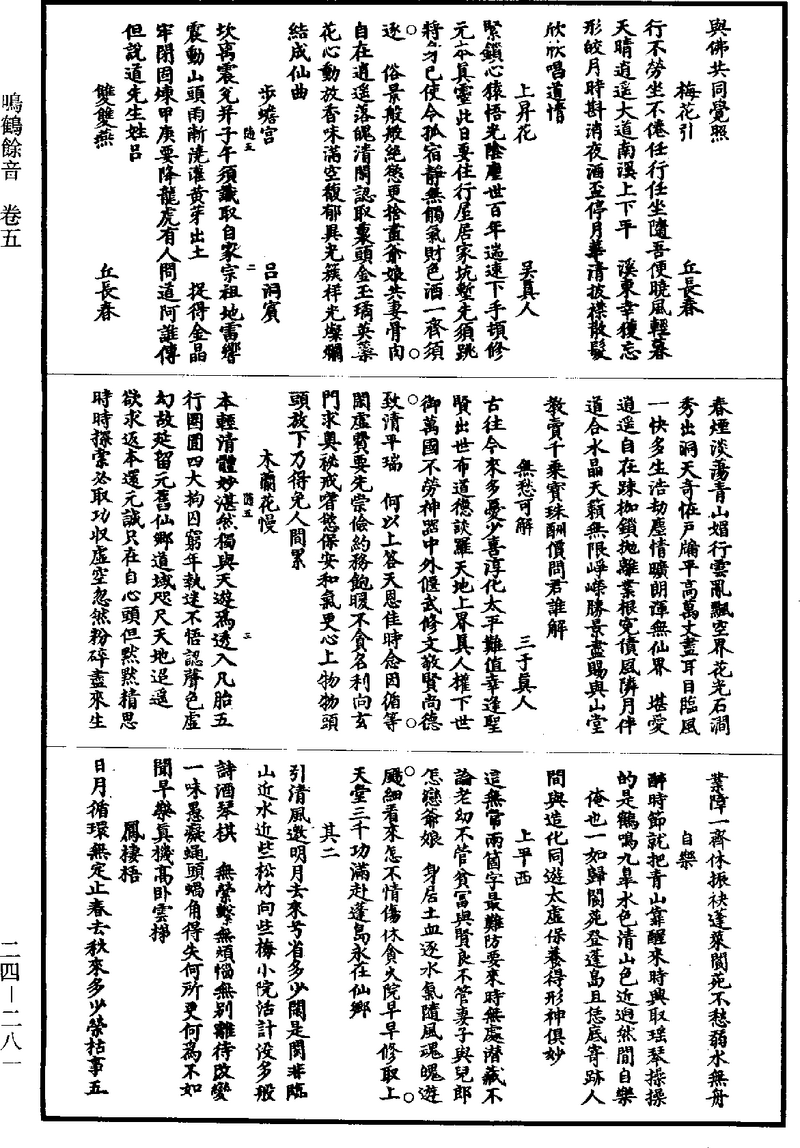 與佛共同覺照
梅花引　丘長春
行不勞坐不倦任行任坐隨吾便曉風輕暮
天晴逍遥大道南溪上下平　溪東幸獲忘
形皎月時斟消夜酒盃停月華清披襟散髮
欣欣唱道情
上昇花　吳真人
緊鎖心猿悟光陰塵世百年遄速下手頓修
元本真靈此日要住行屋居家坑塹先須跳
將身已使令孤宿靜無觸氣財色酒一齊須
逐　俗景般般絕慾更捨盡爺娘共妻骨肉
自在逍遥落魄清閑認取裏頭金玉璚英蘂
花心動放香味滿空馥郁異光簇祥光燦爛
結成仙曲
步蟾宮　呂洞賓
坎离震兊并子午須識取自家宗祖地雷響
震動山頭雨漸澆灌黄芽出土　捉得金晶
牢閉固煉甲庚要降龍虎有人問道阿誰傳
但說道先生姓呂
雙雙燕　丘長春
春煙淡蕩青山媚行雲亂飄空界花光石澗
秀出洞天奇恠戶牖平高萬丈盡耳目臨風
一快多生浩劫塵情曠朗渾無仙界　堪愛
逍遥自在踈枷鎖拋離業根寃債風隣月伴
道合水晶天籟無限崢嶸勝景盡賜與山堂
教賣千乘寳珠酬價問君誰解
無愁可解　三于真人
古往今來多憂少喜淳化太平難值幸逢聖
賢出世布道德談羅天地上界真人權下世
御萬國不勞神器中外偃武修文敬賢尚德
致清平瑞　何以上答天恩佳時念因循等
閑虛費要先崇儉約務飽暖不貪名利向玄
門求奥祕戒嗜慾保安和氣更心上物物頭
頭放下乃得免人間累
木蘭花慢
本輕清體妙湛然獨與天遊爲透入凡胎五
行囹圄四大拘囚窮年執迷不悟認聲色虛
幻故延留元舊仙鄉道域咫尺天地迢遥
欲求返本還元誠只在自心頭但黙黙精思
時時探索必取功收虛空忽然粉碎盡來生
業障一齊休振袂蓬萊閬苑不愁弱水無舟
自樂
醉時節就把青山靠醒來時興取瑶琴操操
的是鶴鳴九臯水色清山色近逈然間自樂
俺也一如歸閬苑登蓬島且恁底寄跡人
間與造化同遊太虛保養得形神俱妙
上平西
這無常兩箇字最難防要來時無處潜藏不
論老幼不管貧冨與賢良不管妻子與兒郎
怎戀爺娘　身居土血逐水氣隨風魂魄遊
颺細看來怎不情傷休貪火院早早修取上
天堂三千功滿赴蓬島永在仙鄉
其二
引清風邀明月去來兮省多少閑是閑非臨
山近水近些松竹向些梅小院活計没多般
詩酒琴棋　無縈繫無煩惱無别離待改變
一味愚癡蠅頭蝸角得失何所更何爲不如
聞早樂真機高卧雲梯
鳳棲梧
日月循環無定止春去秋來多少榮枯事五
鳴鶴餘音　卷五
二四－二八一